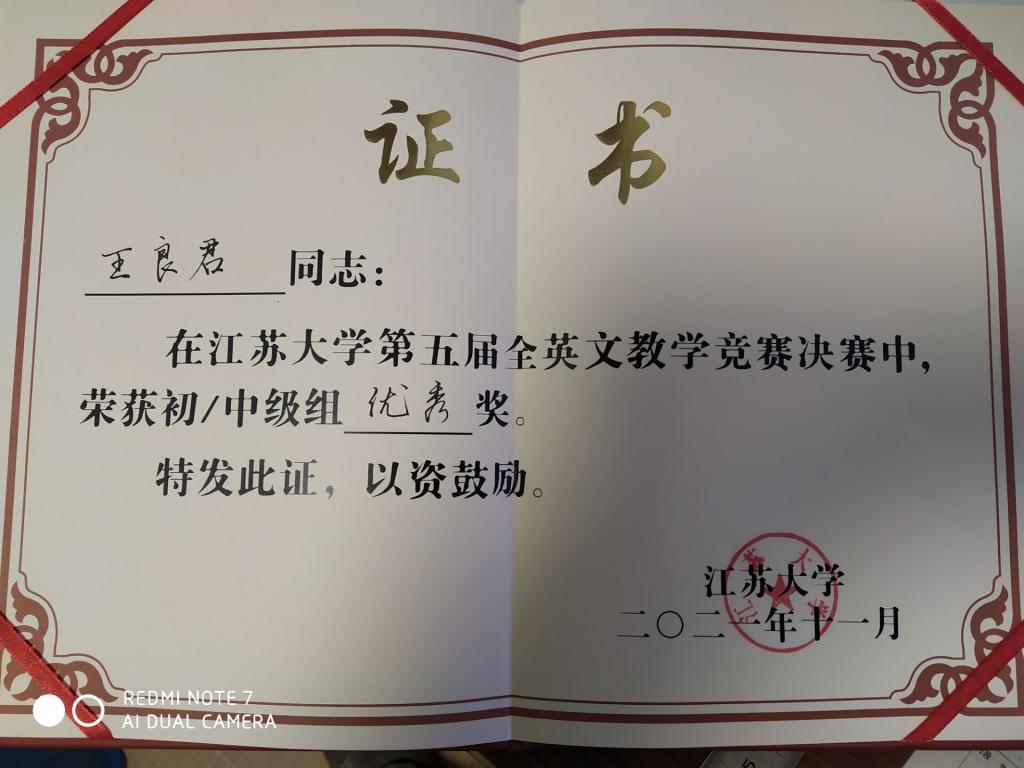 证 书
王良君 同志：
在江苏大学第五届全英文教学竞赛决赛中，
荣获初/中级组 优秀 奖。
特发此证，以资鼓励。
江苏大学
江苏大学
二〇二一年十一月
REDMI NOTE 7
AI DUAL CAMERA
5